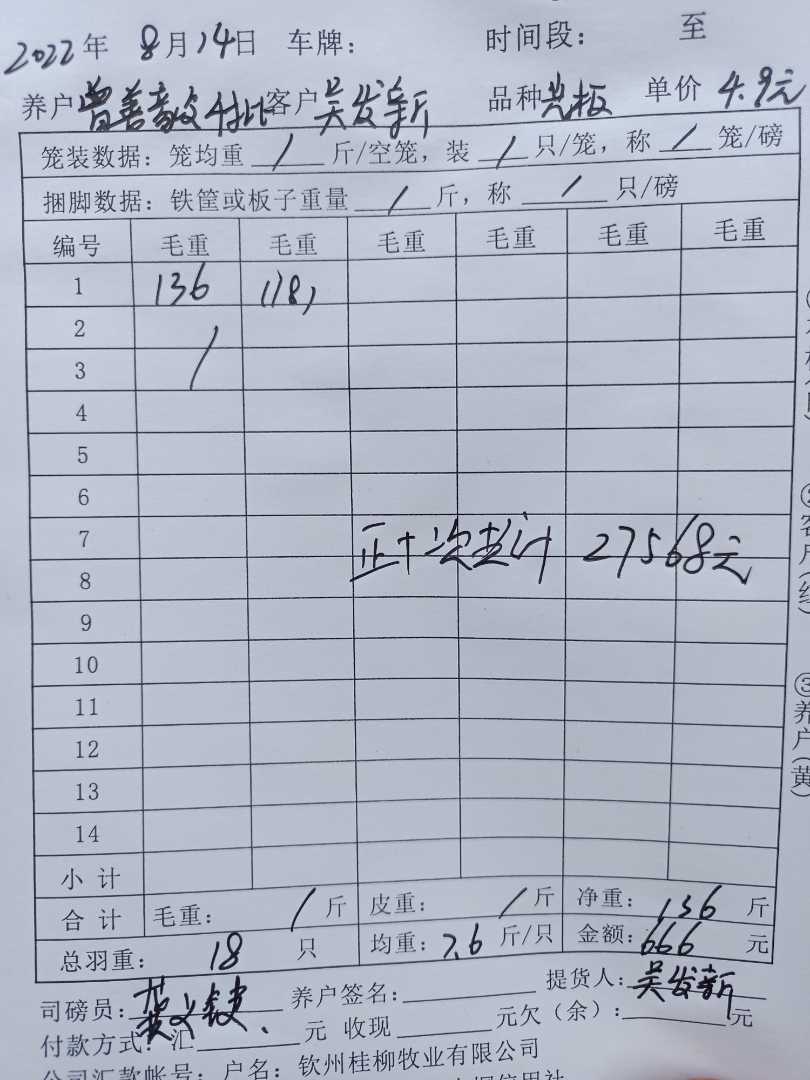 2022年 8月14日 车牌： 时间段： 至
养户 曾善 客户 吴发新 品种 光板 单价 4.9元
笼装数据：笼均重 / 斤/空笼，装 / 只/笼，称 / 笼/磅
捆脚数据：铁筐或板子重量 / 斤，称 / 只/磅
编号 毛重 毛重 毛重 毛重 毛重 毛重
1 136 118,
2 /
3
4
5
6
7
正十次 计 27568元
8
9
10
11
12
13
14
小计
合计 毛重： / 斤 皮重： / 斤 净重： 136 斤
总羽重： 18 只 均重：7.6 斤/只 金额：666 元
司磅员： 养户签名： 提货人：吴发新
付款方式：汇 元 收现 元欠（余）： 元
公司汇款帐号：户名：钦州桂柳牧业有限公司
信用社
客户(红)
③养户(黄)